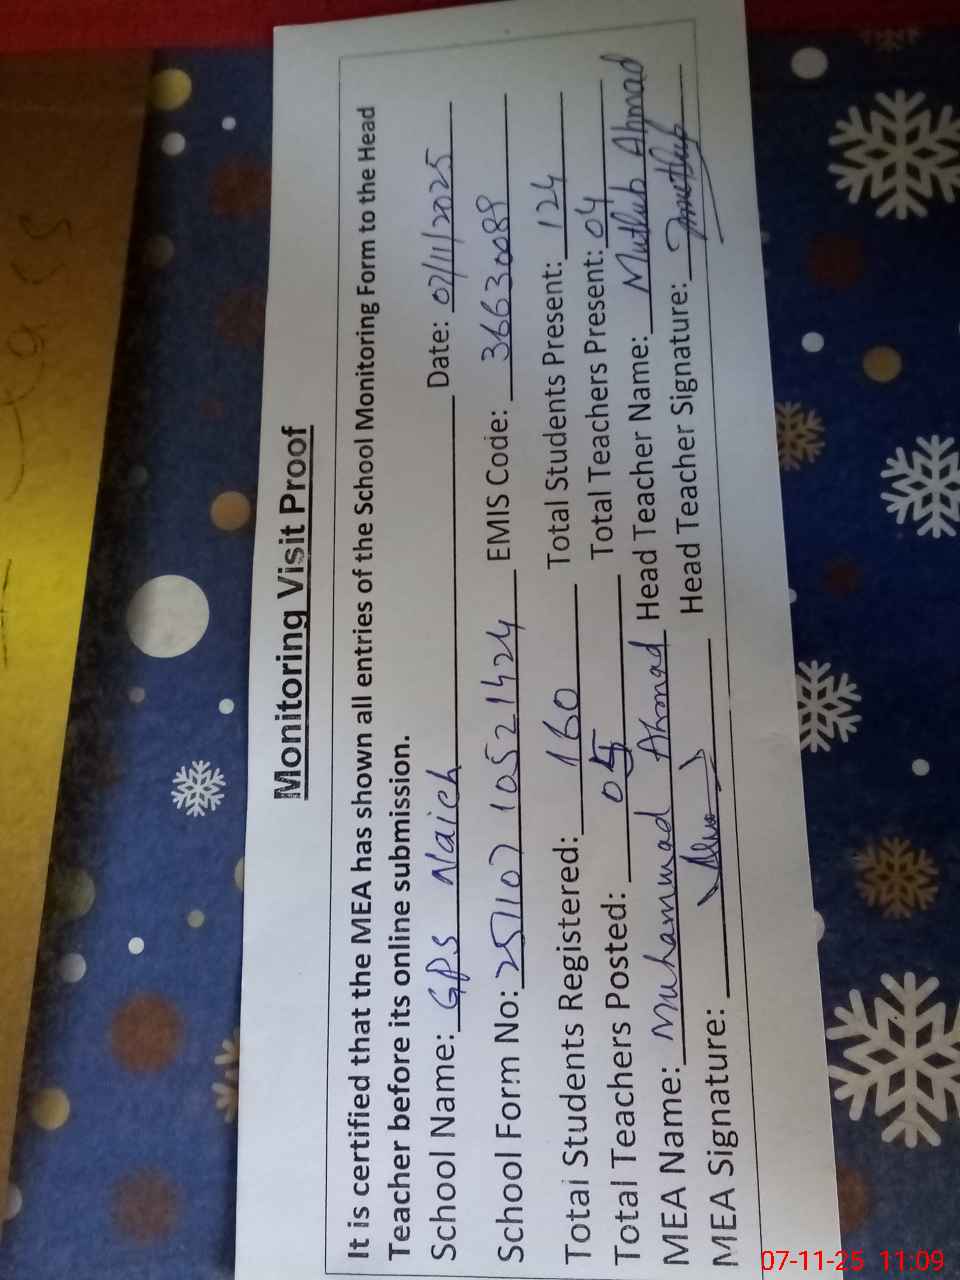 Monitoring Visit Proof
It is certified that the MEA has shown all entries of the School Monitoring Form to the Head
Teacher before its online submission.
School Name: GPS Naich Date: 07/11/2025
School Form No: 25110710521424 EMIS Code: 36630089
Total Students Registered: 160 Total Students Present: 124
Total Teachers Posted: 05 Total Teachers Present: 04
MEA Name: Muhammad Ahmad Head Teacher Name: Mutlub Ahmad
MEA Signature: Head Teacher Signature:
07-11-25 11:09